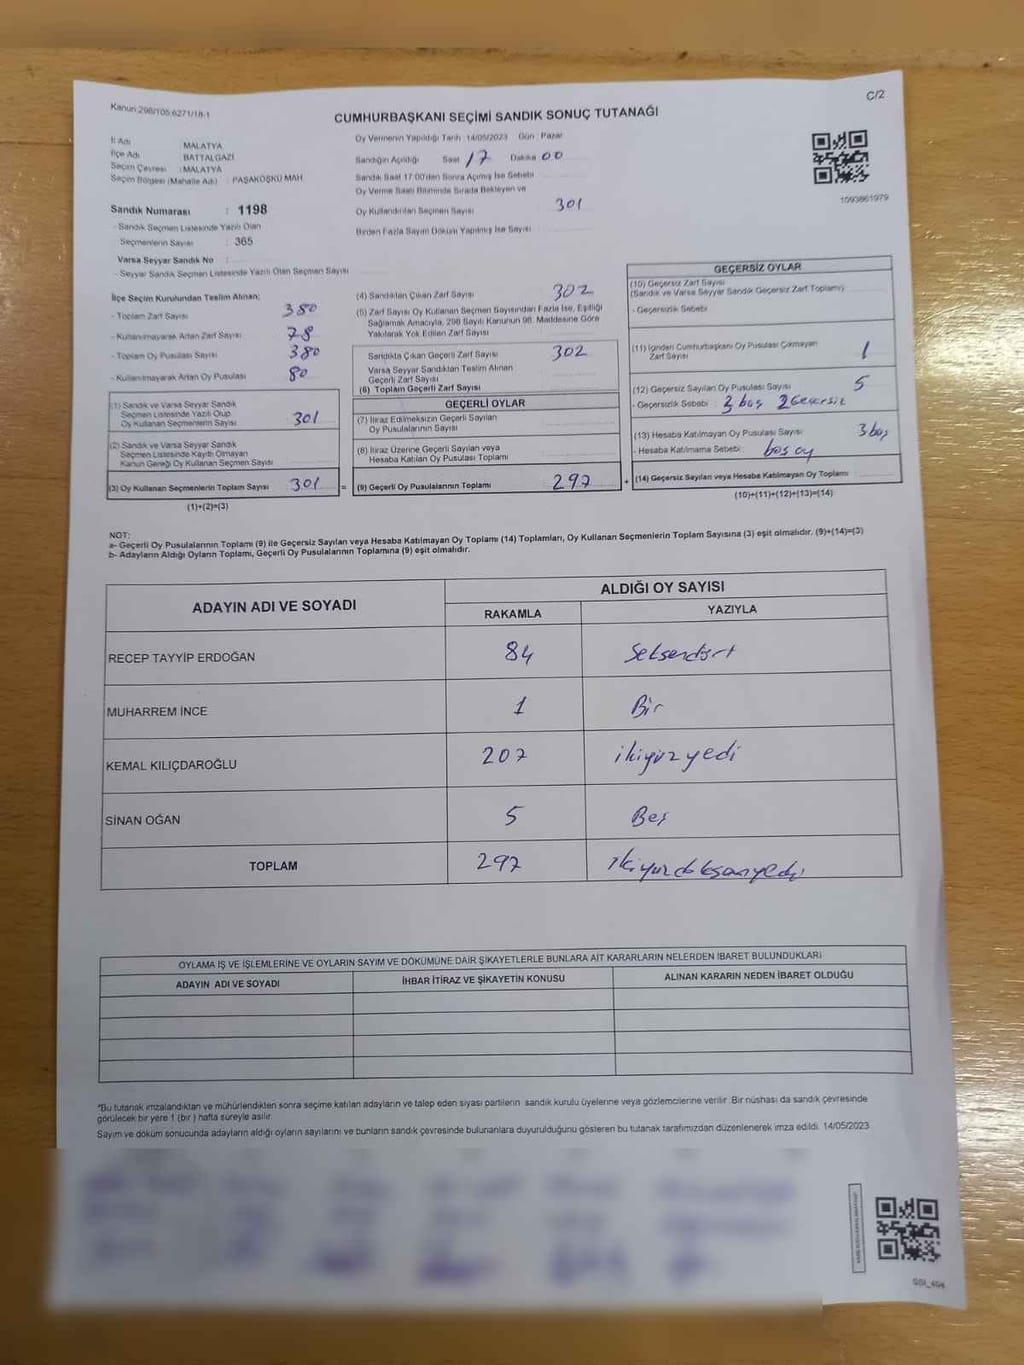 Kanun:298/105:6271/18-1
C/2
CUMHURBAŞKANI SEÇİMİ SANDIK SONUÇ TUTANAĞI
İl Adı : MALATYA
İlçe Adı : BATTALGAZİ
Seçim Çevresi : MALATYA
Seçim Bölgesi (Mahalle Adı) : PAŞAKÖŞKÜ MAH.
Sandık Numarası : 1198
- Sandık Seçmen Listesinde Yazılı Olan
Seçmenlerin Sayısı : 365
Varsa Seyyar Sandık No :
- Seyyar Sandık Seçmen Listesinde Yazılı Olan Seçmen Sayısı
Oy Vermenin Yapıldığı Tarih :14/05/2023 Gün : Pazar
Sandığın Açıldığı Saat 17 Dakika 00
Sandık Saat 17:00'den Sonra Açmış İse Sebebi
Oy Verme Saati Bitiminde Sırada Bekleyen ve
Oy Kullandırılan Seçmen Sayısı 301
Birden Fazla Sayım Döküm Yapılmış İse Sayısı
1093861979
İlçe Seçim Kurulundan Teslim Alınan;
- Toplam Zarf Sayısı 380
- Kullanılmayarak Artan Zarf Sayısı 78
- Toplam Oy Pusulası Sayısı 380
- Kullanılmayarak Artan Oy Pusulası 80
(1) Sandık ve Varsa Seyyar Sandık
Seçmen Listesinde Yazılı Olup
Oy Kullanan Seçmenlerin Sayısı 301
(2) Sandık ve Varsa Seyyar Sandık
Seçmen Listesinde Kayıtlı Olmayan
Kanun Gereği Oy Kullanan Seçmen Sayısı
(3) Oy Kullanan Seçmenlerin Toplam Sayısı 301 =
(1)+(2)=(3)
(4) Sandıktan Çıkan Zarf Sayısı 302
(5) Zarf Sayısı Oy Kullanan Seçmen Sayısından Fazla İse, Eşitliği
Sağlamak Amacıyla, 298 Sayılı Kanunun 98. Maddesine Göre
Yakılarak Yok Edilen Zarf Sayısı
Sandıkta Çıkan Geçerli Zarf Sayısı 302
Varsa Seyyar Sandıktan Teslim Alınan
Geçerli Zarf Sayısı
(6) Toplam Geçerli Zarf Sayısı
GEÇERLİ OYLAR
(7) İtiraz Edilmeksizin Geçerli Sayılan
Oy Pusulalarının Sayısı
(8) İtiraz Üzerine Geçerli Sayılan veya
Hesaba Katılan Oy Pusulası Toplamı
(9) Geçerli Oy Pusulalarının Toplamı 297 +
GEÇERSİZ OYLAR
(10) Geçersiz Zarf Sayısı
(Sandık ve Varsa Seyyar Sandık Geçersiz Zarf Toplamı)
- Geçersizlik Sebebi
(11) İçinden Cumhurbaşkanı Oy Pusulası Çıkmayan
Zarf Sayısı 1
(12) Geçersiz Sayılan Oy Pusulası Sayısı 5
- Geçersizlik Sebebi : 3 boş 2 Geçersiz
(13) Hesaba Katılmayan Oy Pusulası Sayısı 3 boş
- Hesaba Katılmama Sebebi: boş oy
(14) Geçersiz Sayılan veya Hesaba Katılmayan Oy Toplamı
(10)+(11)+(12)+(13)=(14)
NOT:
a- Geçerli Oy Pusulalarının Toplamı (9) ile Geçersiz Sayılan veya Hesaba Katılmayan Oy Toplamı (14) Toplamları, Oy Kullanan Seçmenlerin Toplam Sayısına (3) eşit olmalıdır. (9)+(14)=(3)
b- Adayların Aldığı Oyların Toplamı, Geçerli Oy Pusulalarının Toplamına (9) eşit olmalıdır.
ADAYIN ADI VE SOYADI
ALDIĞI OY SAYISI
RAKAMLA YAZIYLA
RECEP TAYYİP ERDOĞAN 84 Seksendört
MUHARREM İNCE 1 Bir
KEMAL KILIÇDAROĞLU 207 ikiyüzyedi
SİNAN OĞAN 5 Beş
TOPLAM 297 ikiyüzdoksanyedi
OYLAMA İŞ VE İŞLEMLERİNE VE OYLARIN SAYIM VE DÖKÜMÜNE DAİR ŞİKAYETLERLE BUNLARA AİT KARARLARIN NELERDEN İBARET BULUNDUKLARI
ADAYIN ADI VE SOYADI İHBAR İTİRAZ VE ŞİKAYETİN KONUSU ALINAN KARARIN NEDEN İBARET OLDUĞU
*Bu tutanak imzalandıktan ve mühürlendikten sonra seçime katılan adayların ve talep eden siyasi partilerin sandık kurulu üyelerine veya gözlemcilerine verilir. Bir nüshası da sandık çevresinde
görülecek bir yere 1 (bir) hafta süreyle asılır.
Sayım ve döküm sonucunda adayların aldığı oyların sayılarını ve bunların sandık çevresinde bulunanlara duyurulduğunu gösteren bu tutanak tarafımızdan düzenlenerek imza edildi. 14/05/2023